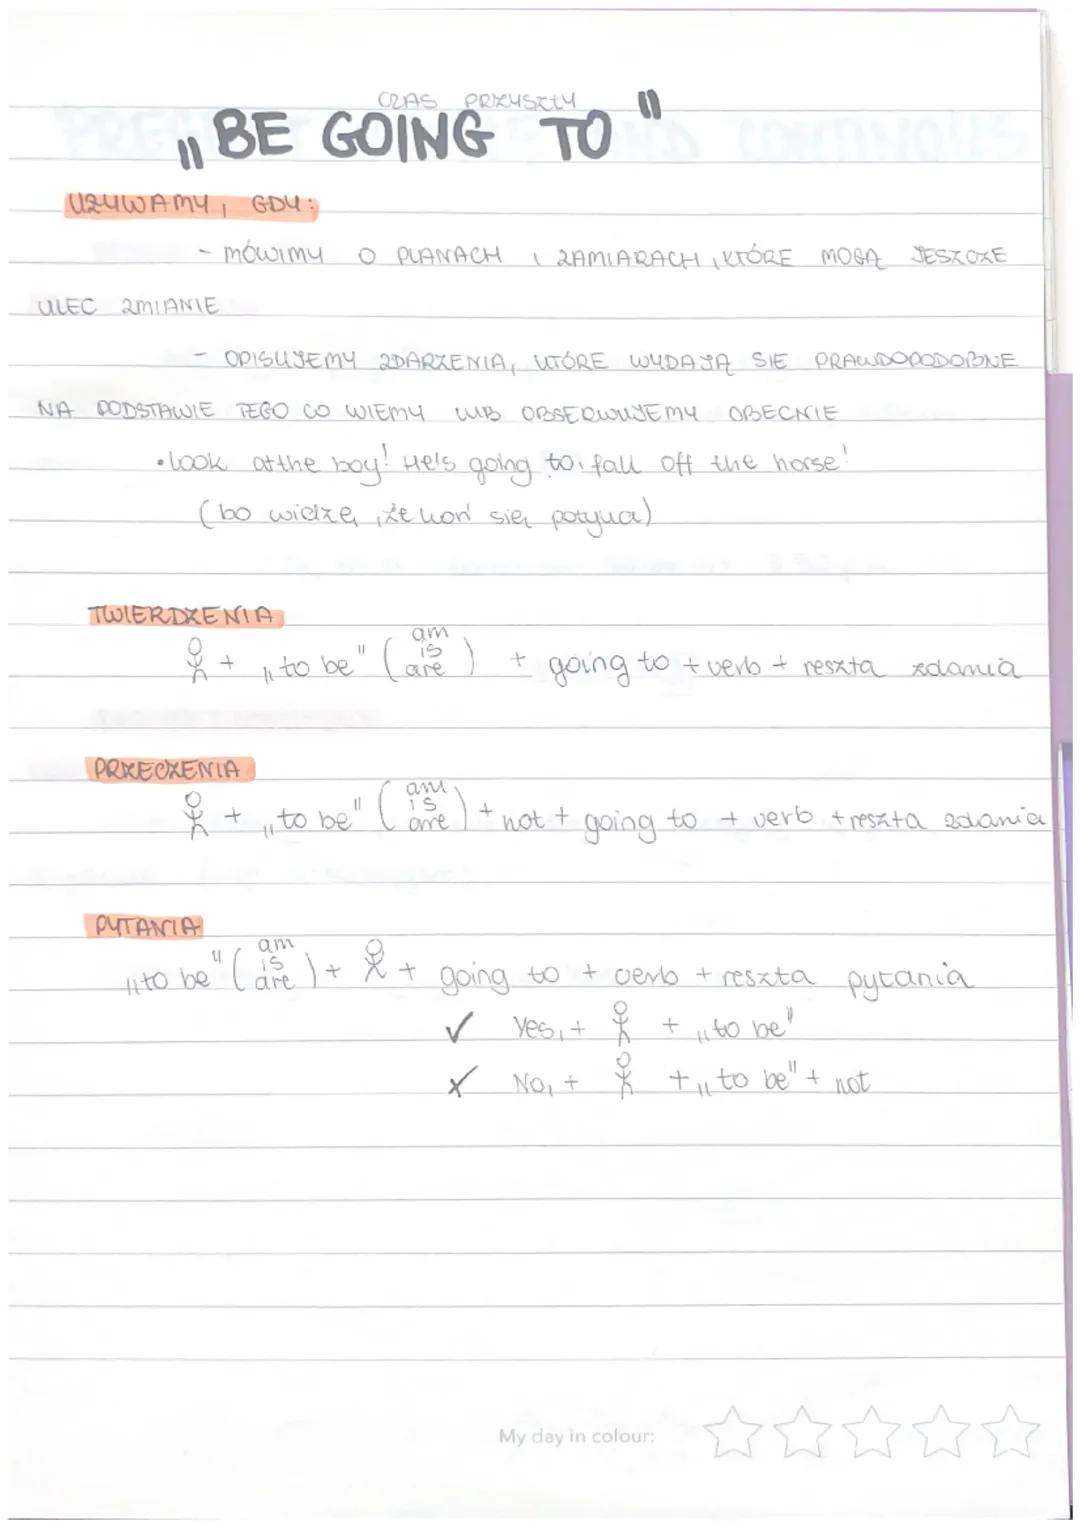 CZAS PRZYSZŁY
„BE GOING TO"
UŻYWAMY, GDY:
- MÓWIMY O PLANACH I ZAMIARACH, KTÓRE MOGĄ JESZCZE
ULEC ZMIANIE
- OPISUJEMY ZDARZENIA, KTÓRE WYDAJĄ SIĘ PRAWDOPODOBNE
NA PODSTAWIE TEGO CO WIEMY LUB OBSERWUJEMY OBECNIE
• look at the boy! He's going to fall off the horse!
(bo widzę, że koń się potyka)
TWIERDZENIA
+ „to be" (am is are) + going to + verb + reszta zdania
PRZECZENIA
+ „to be" (am is are) + not + going to + verb + reszta zdania
PYTANIA
„to be" (am is are) + + going to + verb + reszta pytania
✓ Yes, + + „to be"
x No, + + „to be" + not
My day in colour: